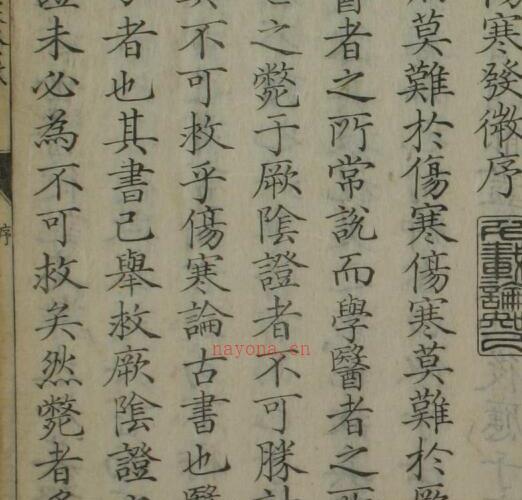 傷寒發微序
莫難於傷寒傷寒莫難於厥
醫者之所常說而學醫者之所
之斃于厥陰證者不可勝計
不可救乎傷寒論古書也醫
者也其書已舉救厥陰證
證未必為不可救矣然斃者
序
nayona.cn